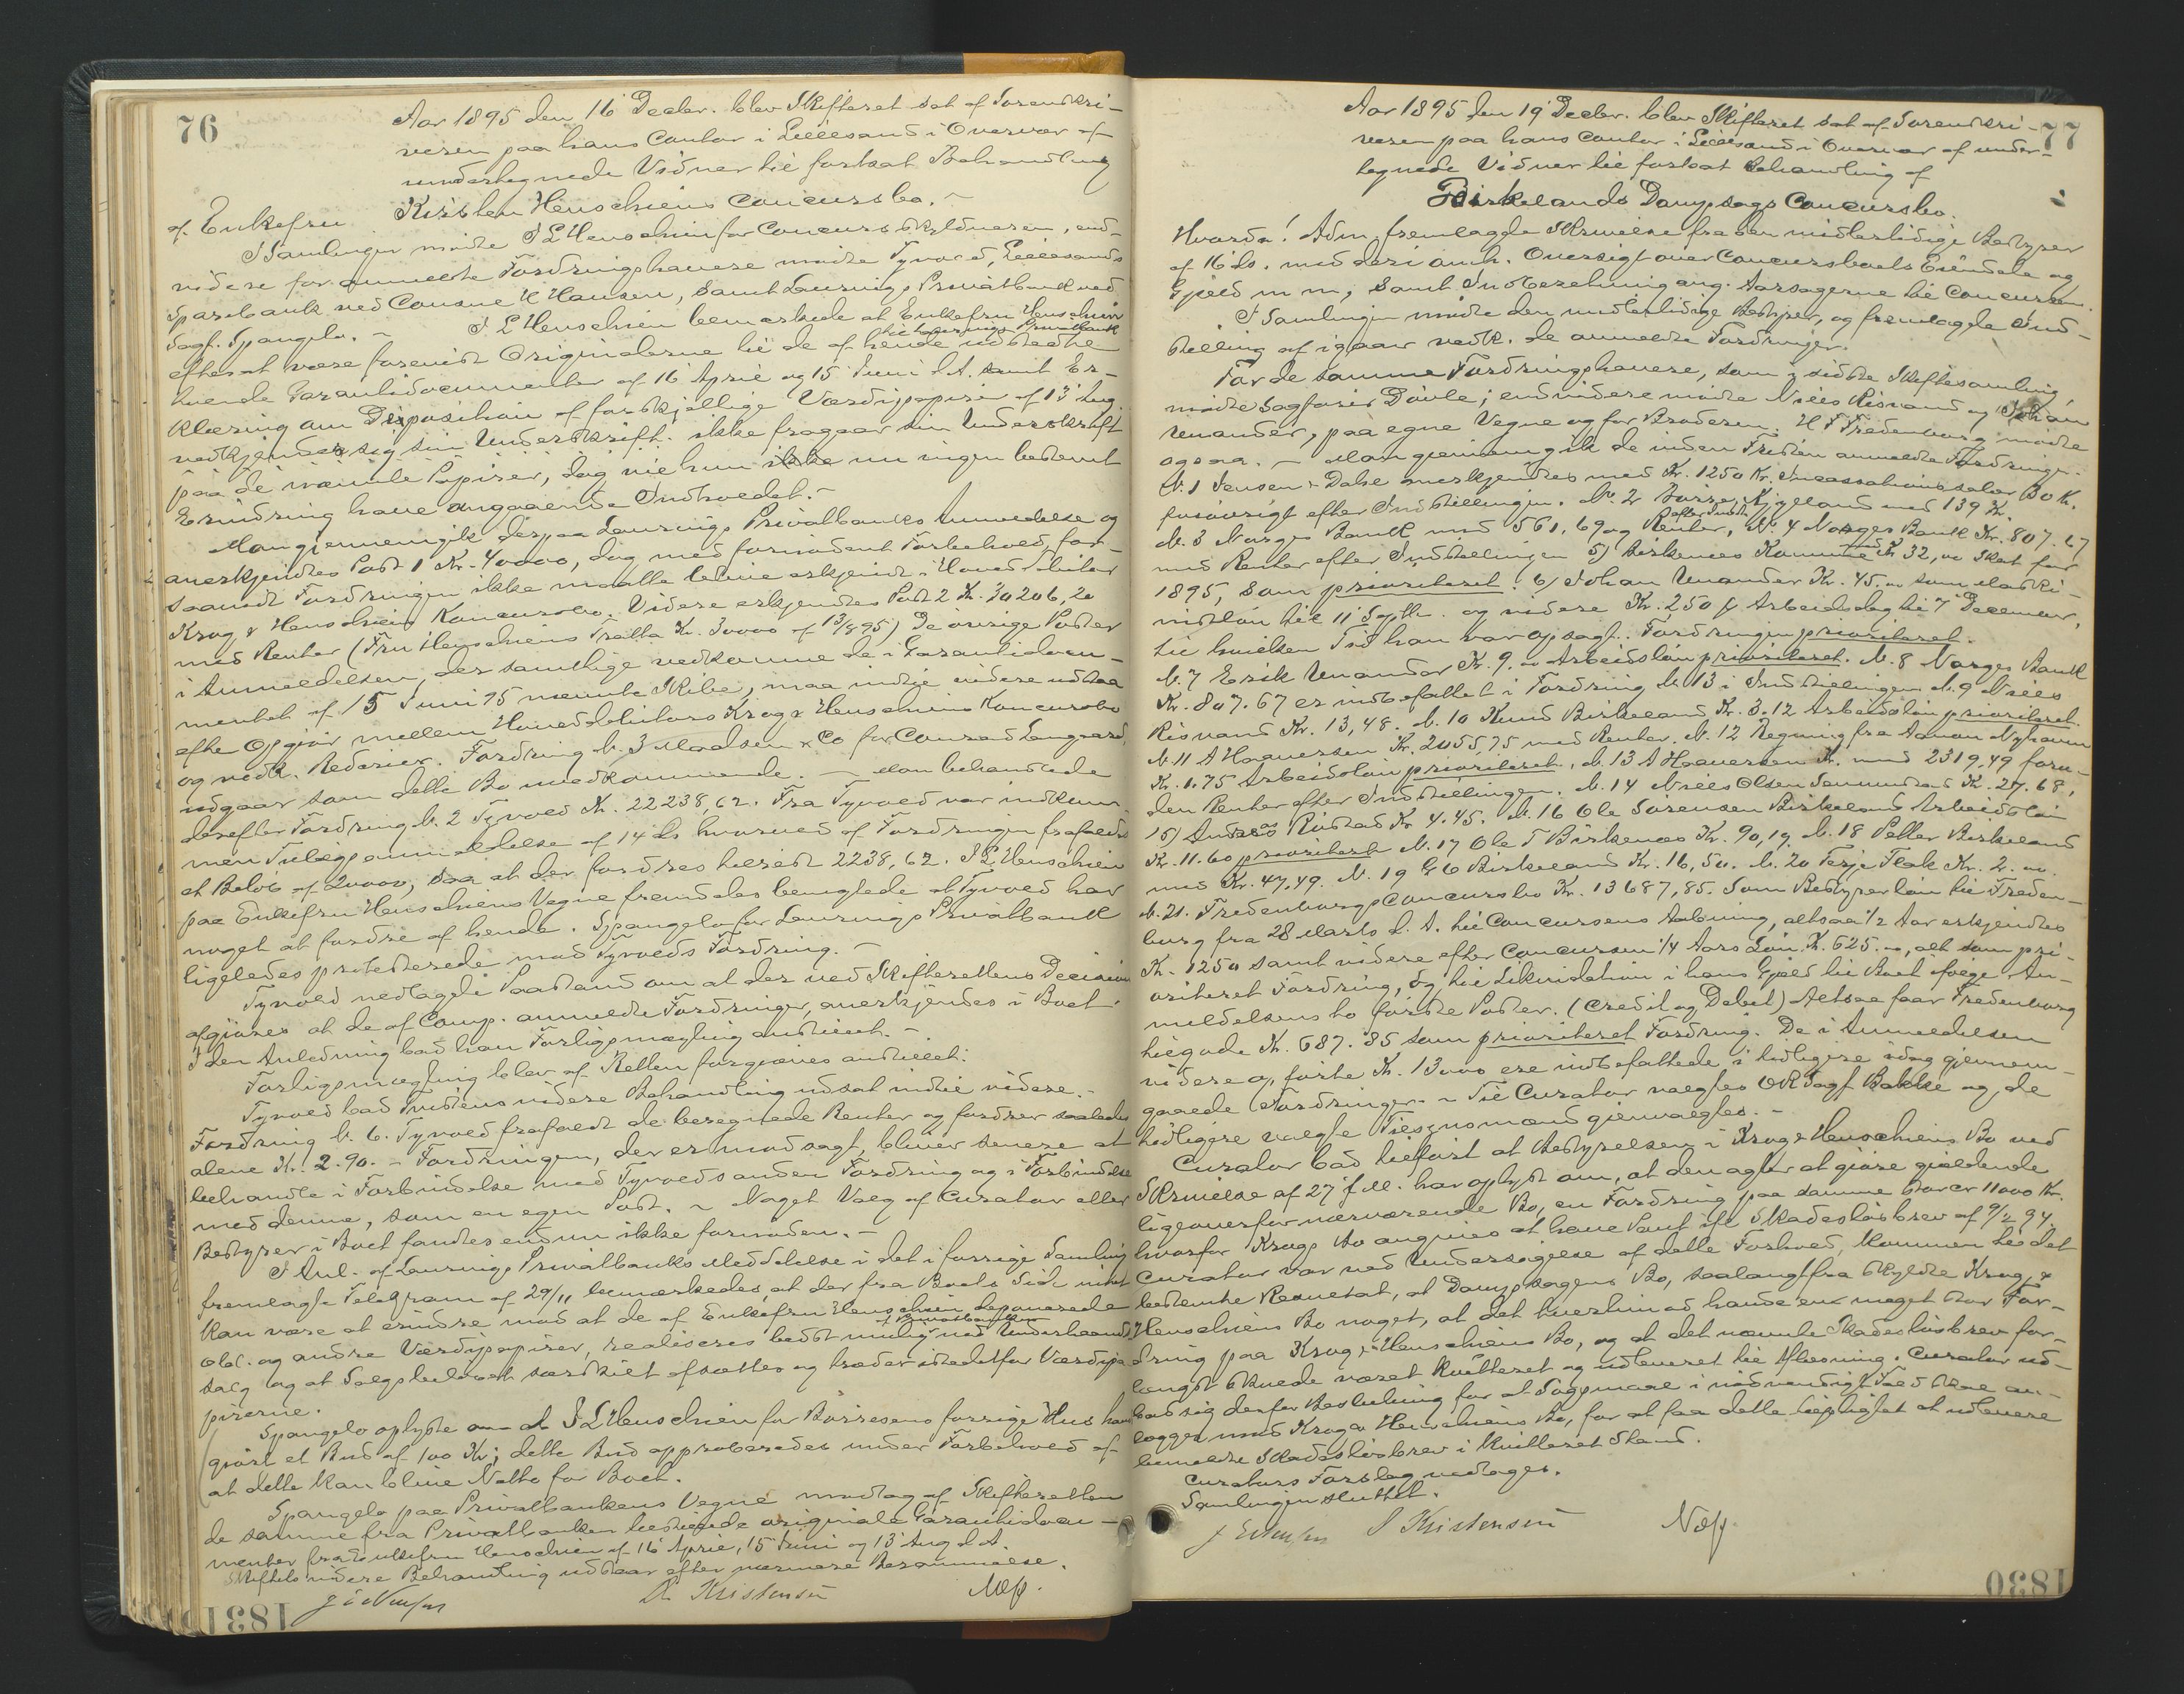 76
Aar 1895 den 16 Decbr. blev Skifteret sat af Sorenskri-
veren paa hans Contor i Lillesand i Overvær af
undertegnede Vidner til fortsat Behandling
af Enkefru Kirsten Henschiens Concursbo. -
I Samlingen mødte J L Henschien for Concursskyldneren, end-
videre for anmeldte Fordringshavere mødte Tynvold, Lillesands
Sparebank ved Consul H Hansen, samt Laurvigs Privatbank ved
Sagf. Spangelo. - J L Henschien bemærkede at Enkefru Henschien
til Laurvigs Privatbank
efter at være forevist Originalerne til de af hende udstedte
hvende Garantidocumenter af 16 April og 15 Juni d. A. samt Er-
klæring om Disposition af forskjellige Værdipapirer af 13 Aug.
vedkjender sig sin Underskrift. ikke fragaar sin Underskrift
paa de nævnte Papirer, dog vil hun ikke nu ingen bestemt
Erindring have angaaende Indholdet. -
Man gjennemgik derpaa Laurvigs Privatbanks Anmeldelse og
anerkjendtes Post 1 Kr. 40000, dog med fornødent Forbehold, for-
saavidt Fordringen ikke maatte blive erkjendt i Hoveddebitor
Krog & Henschiens Konkursbo. Videre erkjendtes Post 2 Kr. 30206,20
med Renter (Fru Henschiens Tratta Kr. 30000 af 13/8 95) De øvrige Poster
i Anmeldelsen, der samtlige vedkomme de i Garantidocu-
mentet af 15 Juni 95 nævnte Skibe, maa indtil videre udstaa
efter Opgjør mellem Hoveddebitors Krog & Henschiens Konkursbo
og vedk. Rederier. Fordring N. 3 Madsen & Co for Conrad Langaard,
udgaar som dette Bo uvedkommende. - Man behandlede
derefter Fordring N. 2 Tynvold Kr. 22238,62. Fra Tynvold var indkom-
men Tillægsanmeldelse af 14 ds hvorved af Fordringen frafaldt
et Beløb af 20000, saa at der fordres hersidst 2238,62. J L Henschien
paa Enkefru Henschiens Vegne fremdeles benegtede at Tynvold har
noget at fordre af hende. Spangelo for Laurvigs Privatbank
ligeledes protesterede mod Tynvolds Fordring. -
Tynvold nedlagde Paastand om at der ved Skifterettens Decision
afgjøres at de af Comp. anmeldte Fordringer, anerkjendes i Boet.
I den Anledning bad han Forligsmægling anstillet. -
Forligsmægling blev af Retten forgjæves anstillet.
Tynvold bad Tvistens videre Behandling udsat indtil videre. -
Fordring N. 6. Tynvold frafaldt de beregnede Renter og fordrer saaledes
alene Kr. 2.90. - Fordringen, der er modsagt, bliver senere at
behandle i Forbindelse med Tynvolds anden Fordring og i Forbindelse
med denne, som en egen Post. - Noget Valg af Curator eller
Bestyrer i Boet fandtes endnu ikke fornøden. -
I Anl. af Laurvigs Privatbanks Meddelelse i det i forrige Samling
fremlagte Telegram af 29/11 bemærkedes, at der fra Boets Side intet
kan være at erindre mod at de af Enkefru Henschien deponerede
af Privatbanken
obl. og andre Værdipapirer, realiseres bedst mulig ved Underhaands
salg og at Salgsbeløbet særskilt afsættes og træder istedetfor Værdipa-
pirerne.
Spangelo oplyste om at J L Henschien for Børresens forrige Hus har
gjort et Bud af 100 Kr; dette Bud approberedes under Forbehold af
at dette kan blive Netto for Boet.
Spangelo paa Privatbankens Vegne modtog af Skifteretten
de samme fra Privatbanken tilstillede originale Garantidocu-
menter fra Enkefru Henschien af 16 April, 15 Juni og 13 Aug d. A.
Skiftets videre Behandling udstaar efter nærmere Berammelse.
S. Kristensen Næss.
1831
77
Aar 1895 den 19 Decbr. blev Skifteret sat af Sorenskri-
veren paa hans Contor i Lillesand i Overvær af under-
tegnede Vidner til fortsat Behandling af
Birkelands Dampsags Concursbo.
Hvorda! Adm. fremlagde Skrivelse fra den midlertidige Bestyrer
af 16 ds. med deri anh. Oversigt over Concursboets Eiendele og
Gjæld m m, samt Indberetning ang. Aarsagerne til Concursen.
I Samlingen mødte den midlertidige Bestyrer, og fremlagde Ind-
stilling af igaar vedk. de anmeldte Fordringer.
For de samme Fordringshavere, som i sidste Skiftesamling,
mødte Sagfører Døvle; endvidere mødte Niels Risvand og Johan
Unander, paa egne Vegne og for Broderen. H F Fredenborg mødte
ogsaa. - Man gjennemgik de inden Fristen anmeldte Fordringer.
N. 1 Jensen & Dahl anerkjendtes med Kr. 1250 Kr. Incassationssalær 30 K.
forøvrigt efter Indstillingen. No. 2 Kjygland med 139 Kr.
efter Indst.
N. 3 Norges Bank med 561,69 og Renter, N. 4 Norges Bank Kr. 807.67
med Renter efter Indstillingen 5) Birkenes Kommune med Kr 32,00 Skat for
1895, som prioriteret. 6) Johan Unander Kr. 45.00 som Maski-
nistløn til 11 Septb. og videre Kr. 2.50 pr Arbeidsdag til 7 December,
til hvilken Tid han var opsagt. Fordringen prioriteret.
N. 7 Erik Unander Kr. 9.00 Arbeidsløn prioriteret. N. 8 Norges Bank
Kr. 807.67 er indbefattet i Fordring N. 13 i Indstillingen N. 9 Niels
Risvand Kr. 13,48. N. 10 Knud Birkeland Kr. 3.12 Arbeidsløn prioriteret
N. 11 A Haaversen Kr. 2055,75 med Renter. N. 12 Regning fra Aanon Nyhaven
Kr. 1.75 Arbeidsløn prioriteret, N. 13 A Haaversen Kr. med 2319,49 foru-
den Renter efter Indstillingen. N. 14 Niels Olsen Senumstad Kr. 27.68,
15) Andreas Rustad Kr 4.45. N. 16 Ole Sørensen Birkeland Arbeidsløn
Kr. 11.60 prioriteret N. 17 Ole T Birkenes Kr. 90,19 N. 18 Petter Birkeland
med Kr. 47.49. N. 19 G O Birkeland Kr. 16,50. N. 20 Terje Flak Kr. 2.00.
N. 21. Fredenborgs Concursbo Kr. 13687,85. Som Bestyrerløn til Freden-
borg fra 28 Marts d. A. til Concursens Aabning, altsaa 1/2 Aar erkjendtes
Kr. 1250 samt videre efter Concursen 1/4 Aars Løn Kr. 625.-, alt som pri-
oriteret Fordring, dog til Likvidation i hans Gjæld til Boet ifølge An-
meldelsens to første Poster. (Credit og Debet) Altsaa faar Fredenborg
tilgode Kr. 687.85 som prioriteret Fordring. De i Anmeldelsen
videre opførte Kr. 13000 ere indbefattede i tidligere idag gjennem-
gaaede Fordringer. - Til Curator valgtes OR Sagf Bakke og de
tidligere valgte Tilsynsmænd gjenvalgtes. -
Curator bad tilført at Bestyrelsen i Krog & Henschiens Bo ved
Skrivelse af 27 f. M. har oplyst om, at den agter at gjøre gjældende
ligeoverfor nærværende Bo, en Fordring paa samme stor cr 11000 Kr.
hvorfor Krogs Bo angives at have Pant ifl Skadesløsbrev af 9/2 94.
Curator var ved Undersøgelse af dette Forhold, kommen til det
bestemte Resultat, at Dampsagens Bo, saalangtfra skyldte Krog &
Henschiens Bo noget, at det tvertimod havde en meget stor For-
dring paa Krog & Henschiens Bo, og at det nævnte Skadesløsbrev for-
længst skulde været kvitteret og udleveret til Aflysning. Curator ud-
bad sig derfor Beslutning for at Søgsmaal i nødvendigt Fald skal an-
lægges mod Krog & Henschiens Bo, for at faa dette tilpligtet at udlevere
bemeldte Skadesløsbrev i kvitteret Stand.
Curators Forslag vedtoges.
Samlingen sluttet.
S Kristensen Næss.
1830